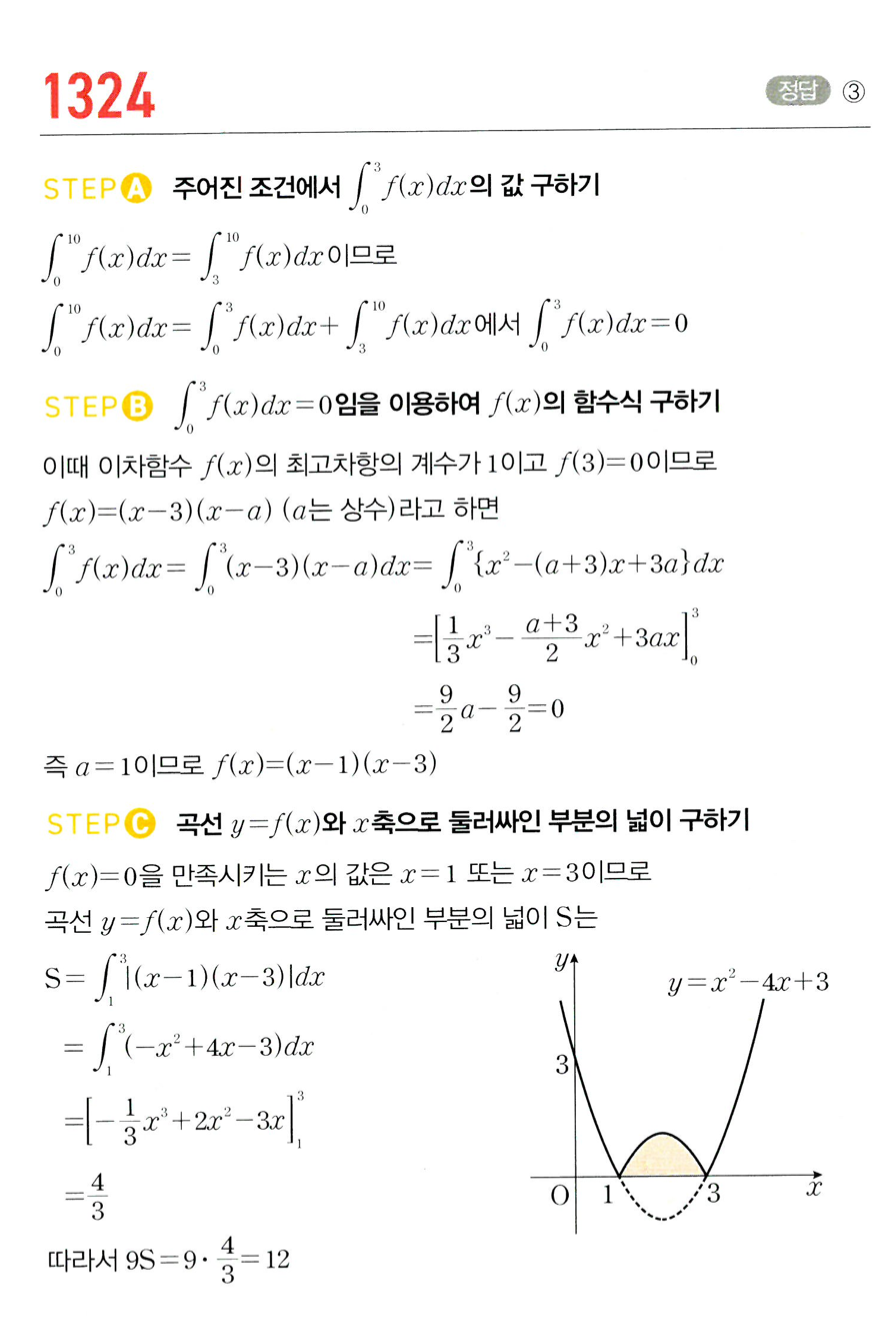 1324
정답 ③
STEP A 주어진 조건에서 ∫₀³ f(x)dx의 값 구하기
∫₀¹⁰ f(x)dx = ∫₃¹⁰ f(x)dx이므로
∫₀¹⁰ f(x)dx = ∫₀³ f(x)dx + ∫₃¹⁰ f(x)dx에서 ∫₀³ f(x)dx = 0
STEP B ∫₀³ f(x)dx = 0임을 이용하여 f(x)의 함수식 구하기
이때 이차함수 f(x)의 최고차항의 계수가 1이고 f(3)=0이므로
f(x)=(x−3)(x−a) (a는 상수)라고 하면
∫₀³ f(x)dx = ∫₀³ (x−3)(x−a)dx = ∫₀³ {x²−(a+3)x+3a}dx
=[1/3 x³ − (a+3)/2 x² + 3ax]₀³
=9/2 a − 9/2 = 0
즉 a=1이므로 f(x)=(x−1)(x−3)
STEP C 곡선 y=f(x)와 x축으로 둘러싸인 부분의 넓이 구하기
f(x)=0을 만족시키는 x의 값은 x=1 또는 x=3이므로
곡선 y=f(x)와 x축으로 둘러싸인 부분의 넓이 S는
S= ∫₁³ |(x−1)(x−3)|dx
= ∫₁³ (−x²+4x−3)dx
=[−1/3 x³+2x²−3x]₁³
=4/3
따라서 9S=9·4/3=12
y
y=x²−4x+3
3
O 1 3 x